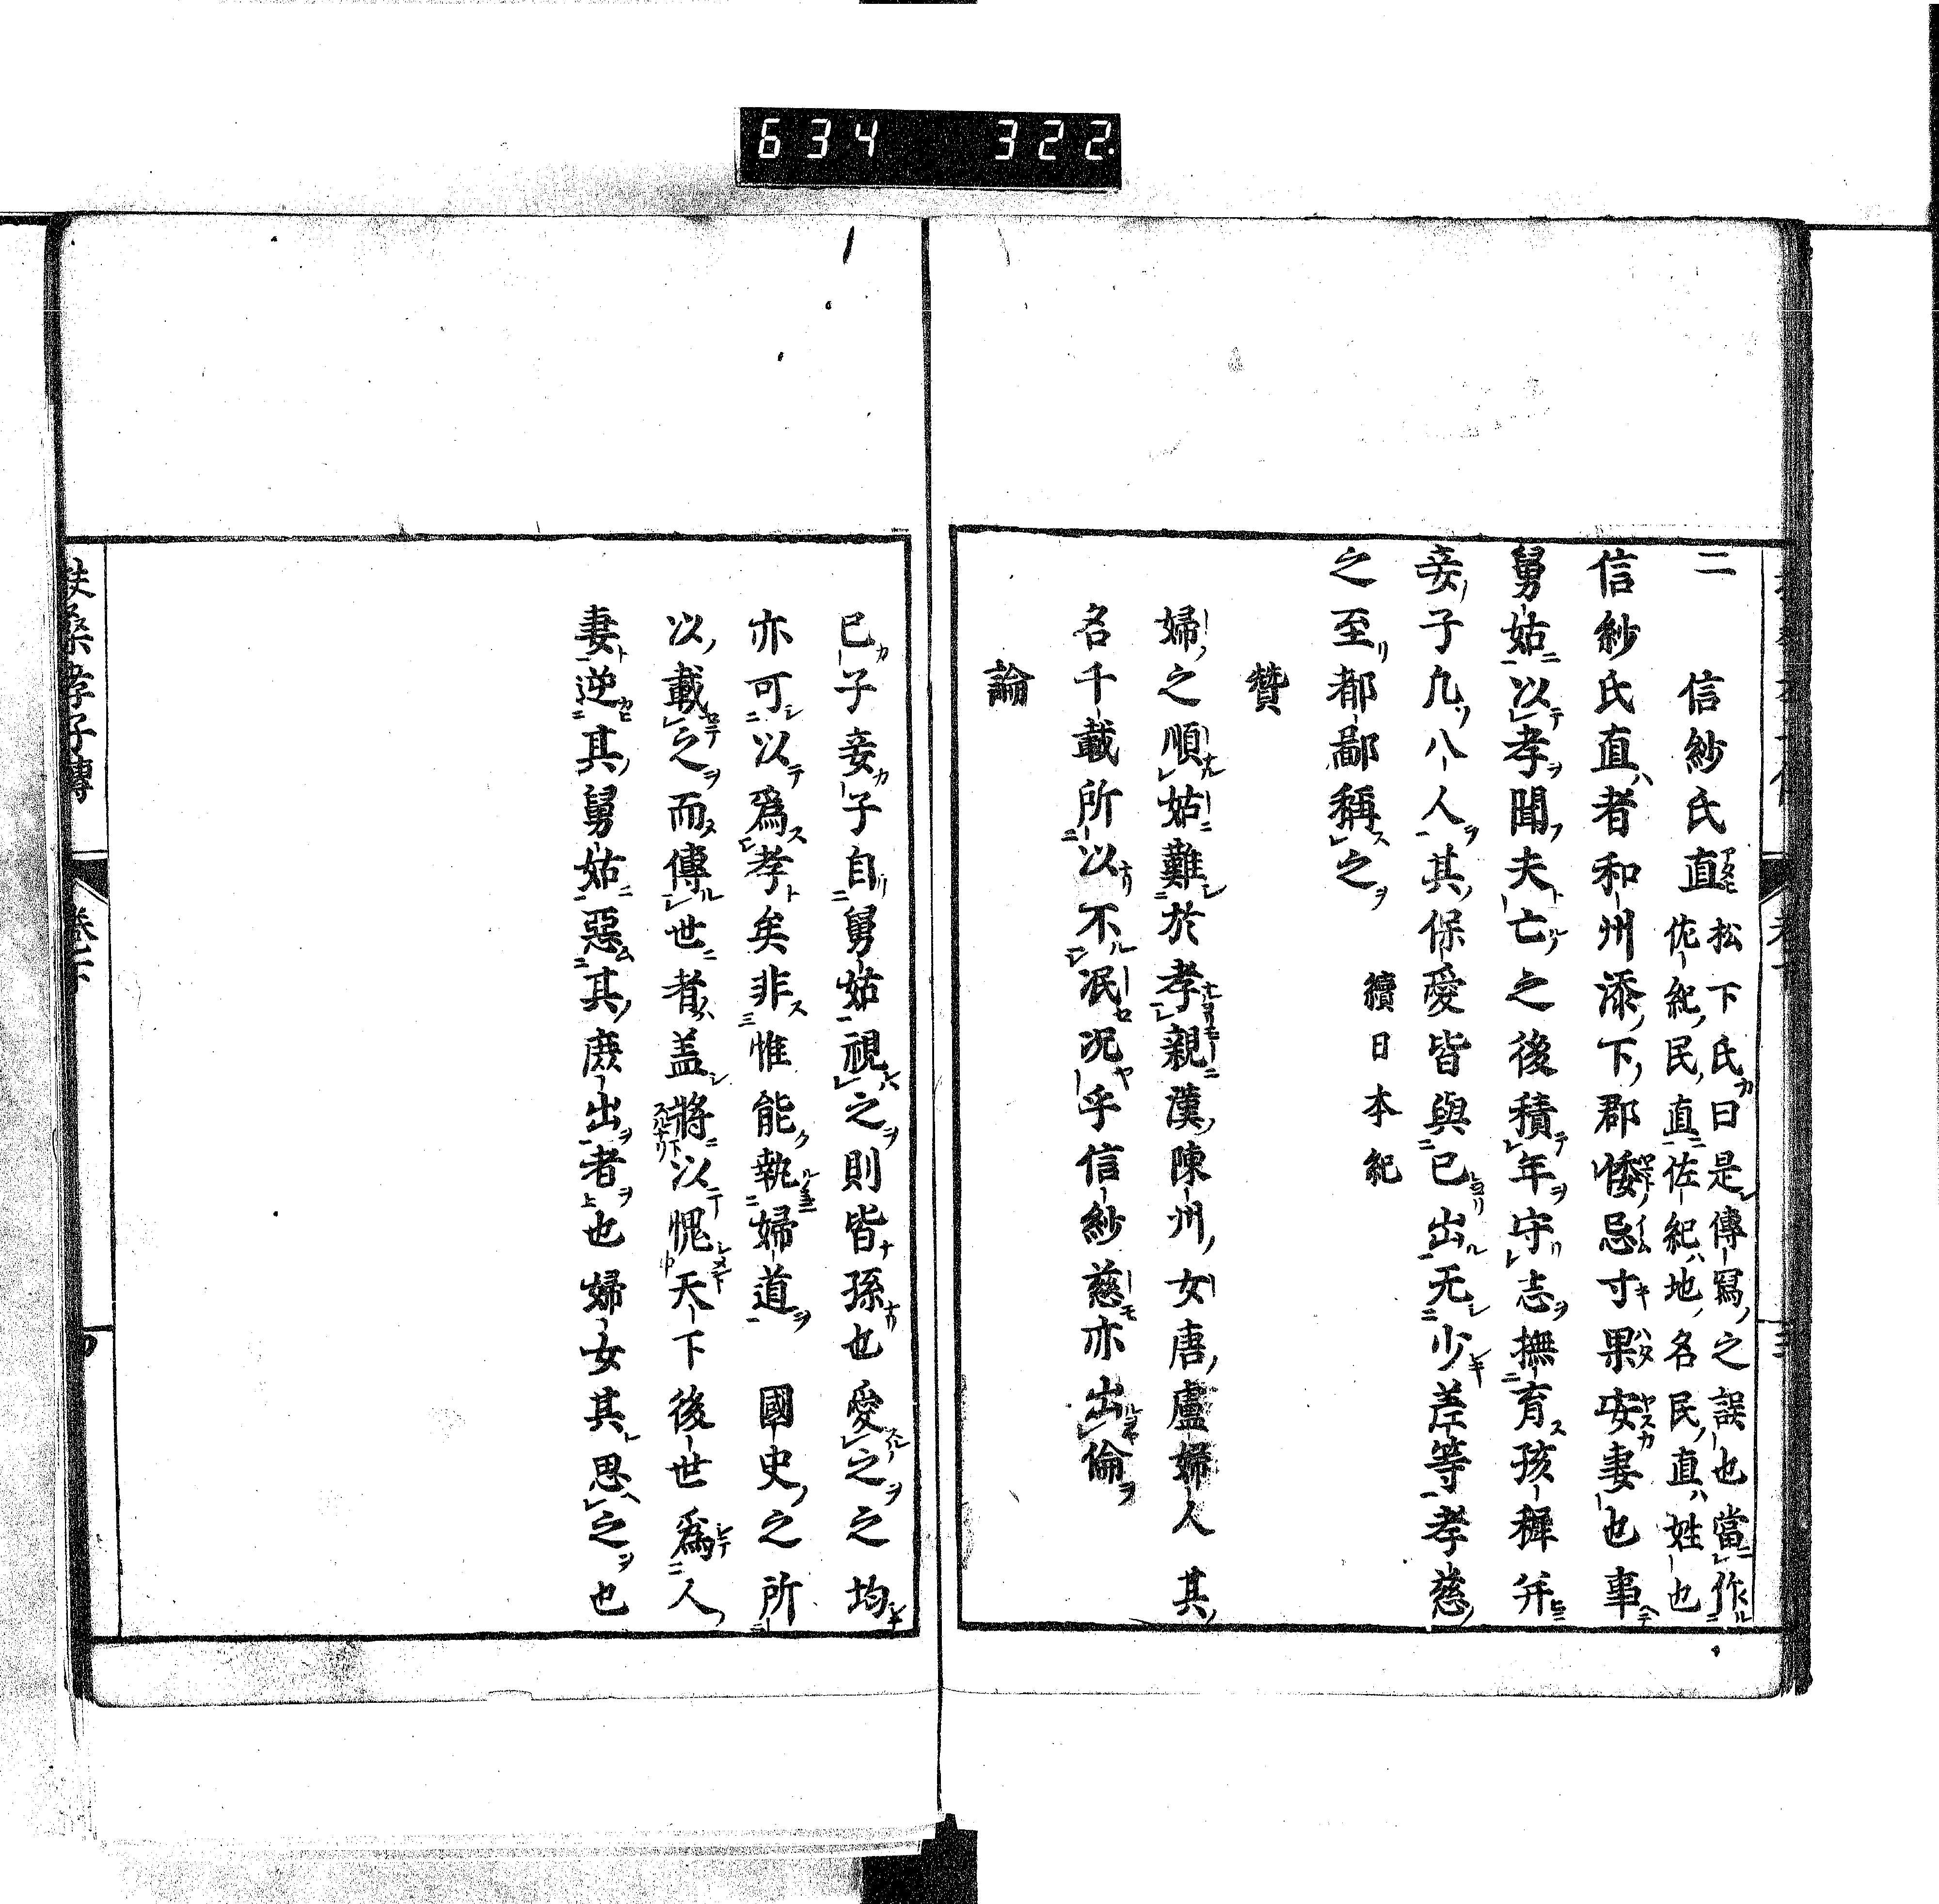 634 322
二
信紗氏直 松下氏曰是傳寫之誤也當作
佐紀民直佐紀地名民直姓也
信紗氏直者和州添下郡倭忌寸果安妻也事
舅姑以孝聞夫亡之後積年守志撫育孩穉并
妾子凢八人其保愛皆與己出无少差等孝慈
之至都鄙稱之 續日本紀
贊
婦之順姑難於孝親漢陳州女唐盧婦人其
名千載所以不泯況乎信紗慈亦出倫
論
己子妾子自舅姑視之則皆孫也愛之之均
亦可以爲孝矣非惟能執婦道 國史之所
以載之而傳世者盖將以愧天下後世爲人
妻逆其舅姑惡其庶出者也婦女其思之也
扶桑孝子傳 卷下